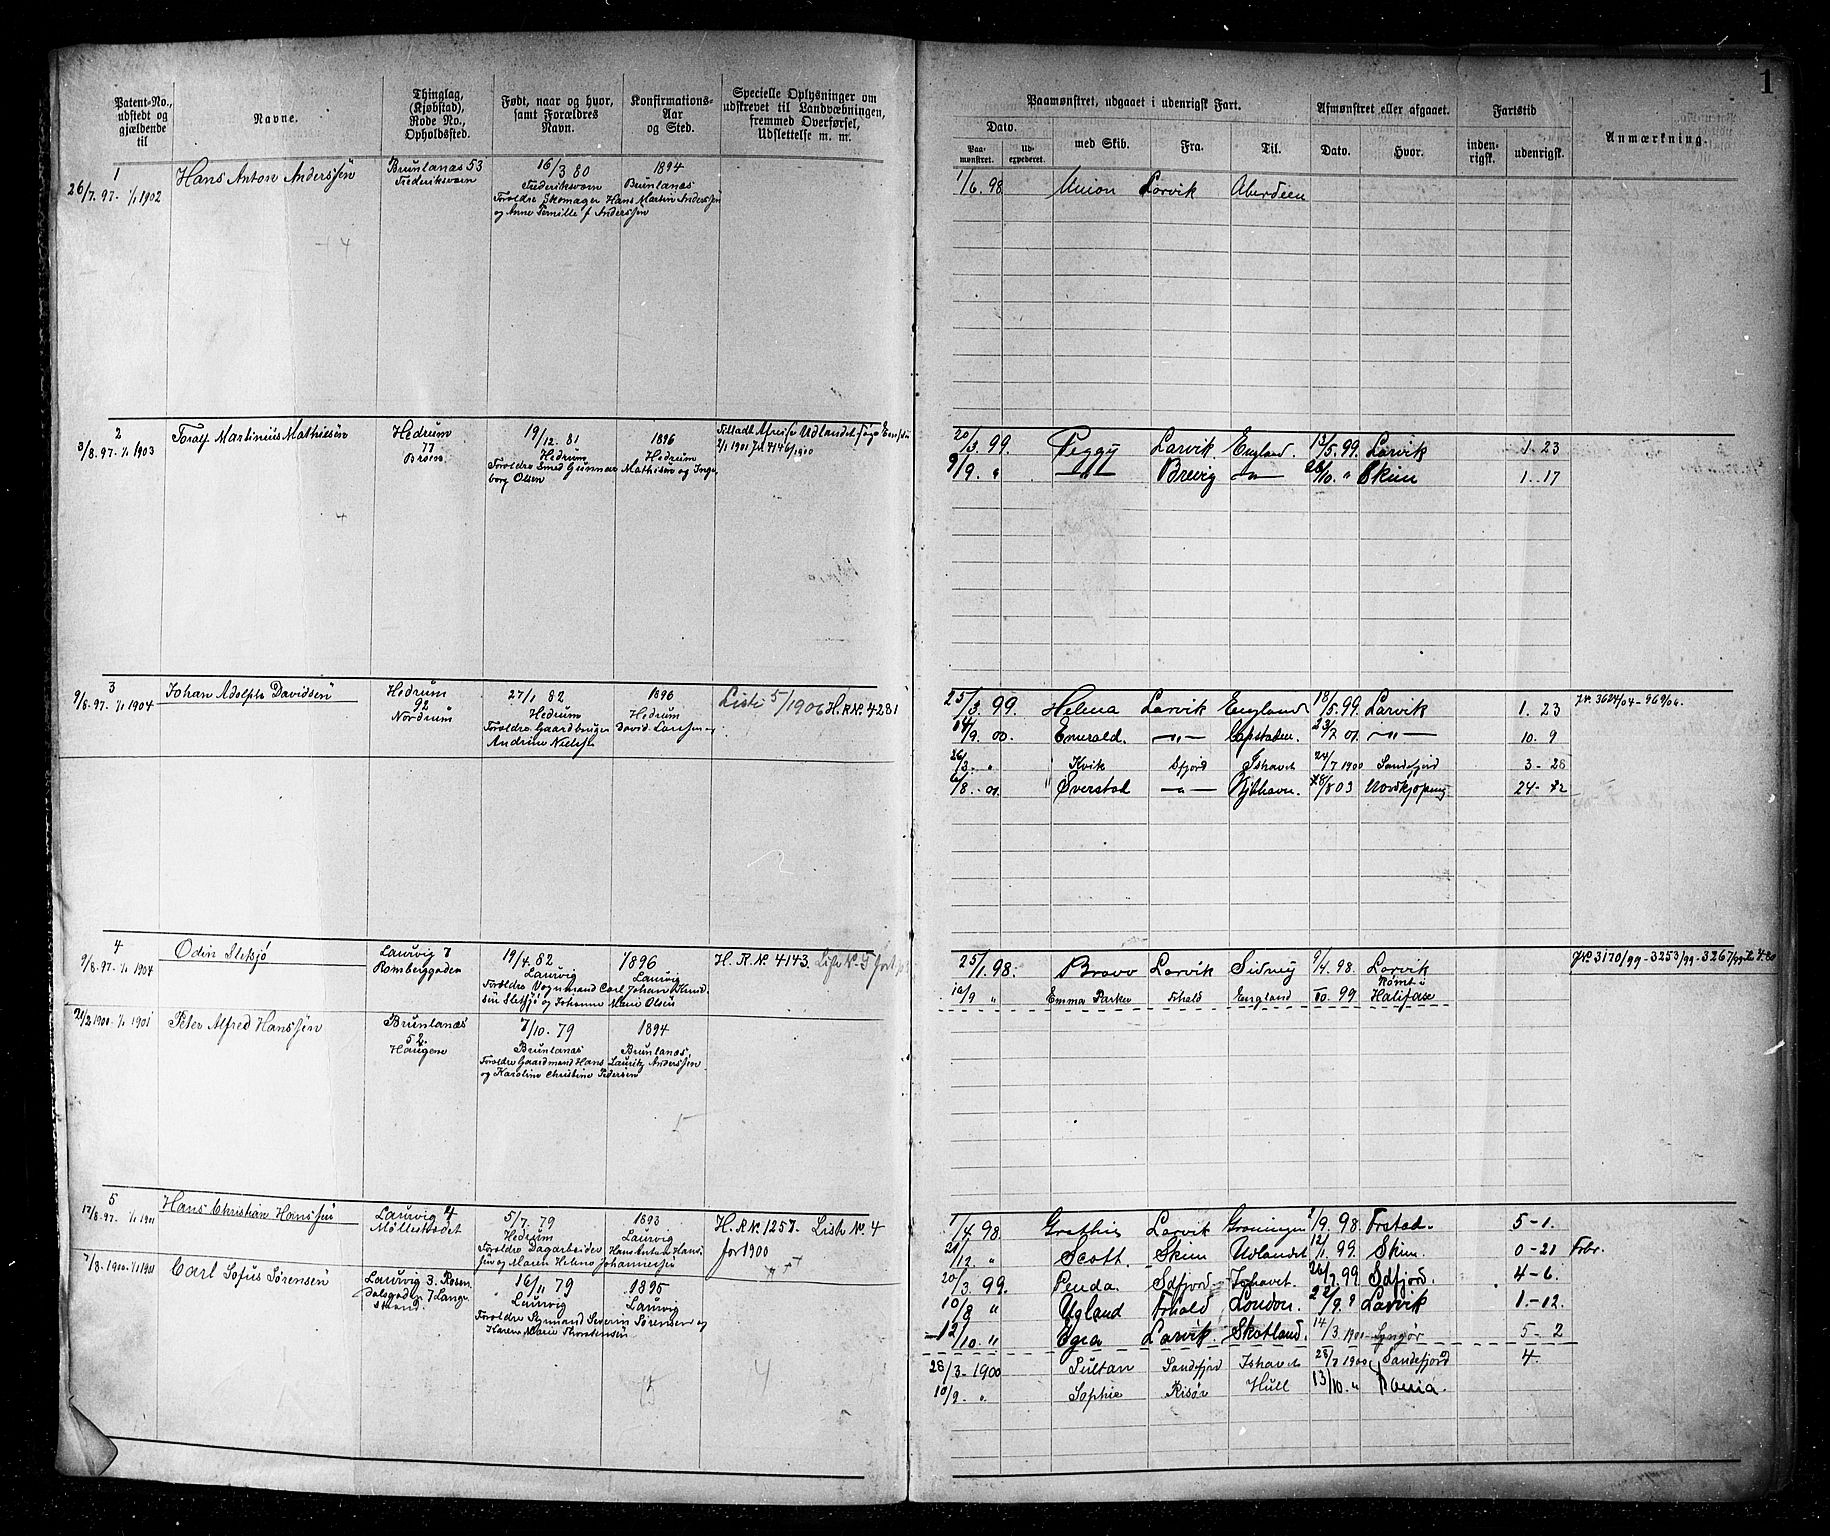 1
Patent-No., udstedt og gjældende til
Navne.
Thinglag, (Kjøbstad), Rode No., Opholdssted.
Født, naar og hvor, samt Forældres Navn.
Konfirmations- Aar og Sted.
Specielle Oplysninger om udskrevet til Landværbningen, fremmed Overførsel, Udslettelse m. m.
Paamønstret, udgaaet i udenrigsk Fart.
Dato.
Paa- mønstret.
Ud- expederet.
med Skib.
Fra.
Til.
Afmønstret eller afgaaet.
Dato.
Hvor.
Fartstid
inden- rigsk.
udenrigsk.
Anmærkning.
1
26/7. 97. 1/1 1902
Hans Anton Anderssen
Brunlanæs 53
Frederiksværn
16/3 80
Frederiksværn
1894
Brunlanæs
Forældre Skomager Hans Martin Anderssen
og Anne Pernille f. Anderssen
1/6. 98. Union Larvik Aberdeen
2
3/8. 97. 1/1 1903
Toralf Martinius Mathiesen
Hedrum
77
19/12. 81
Hedrum
1896
Hedrum
Forældre Smed Gunnar Mathisen og Inge
borg Olsen
20/3. 99. Peggy Larvik England. 13/5. 99. Larvik 1. 23
9/9. " —"— Brevig —"— 26/10. " Skien 1. 17
3
9/8. 97. 1/1 1904
Johan Adolph Davidsen
Hedrum
92
Nordrum
27/1 82
Hedrum
1896
Hedrum
Forældre Gaardbruger David Larssen
Andrine Nielsd.
Liste 5/1906 H.R.N. 4281
25/3. 99. Helena Larvik England 18/5. 99. Larvik 1. 23
14/9. 00. Emerald. —"— Capstaden. 23/7 01 —"— 10. 9
26/3. " Kvik Sfjord Ishavet 24/7 1900 Sandefjord 3 - 28
6/8. 01 Øverstad —"— Kjbhavn. 28/8 03 Nordkjøping 24-
JN. 3624/04 - 969/06.
4
9/8. 97. 1/1 1904
Odin Sletsjø
Laurvig 7
Romberggaden
19/4. 82
Laurvig
1896
Laurvig
Forældre Vognmand Carl Johan Amund
sen Sletsjø og Johanne Marie Olsen
H. R. N. 4143. Liste N. 5
25/1. 98. Bravo Larvik Sidney 9/4. 98. Larvik
Rømt i
10/9 " Emma Parker Frhald England 10. 99 Halifax
JN. 3170/99 - 3253/99 - 3267/99
21/2 1900. 1/1 1901
Peter Alfred Hanssen
Brunlanæs
52
Haugene
7/10. 79
Brunlanæs
1894
Brunlanæs
Forældre Gaardmand Hans Lauritz Anderssen
og Karoline Christine Pedersen
5
12/8. 97. 1/1 1901
Hans Christian Hanssen
Laurvig 4
Møllestrædet
5/7. 79
Hedrum
1893
Laurvig
Forældre Dagarbeider Hans Anton Hans
sen og Maren Helene Johannessen
H. R. N. 1257. Liste N. 4
for 1900
1/4. 98. Grethis Larvik Groningen 2/9. 98. Frstad. 5 - 1.
21/12. " Scott. Skien Udlandet 12/1. 99. Skien. 0 - 21 Frbr.
20/3. 99. Penda Sdfjord. Ishavet 26/7. 99. Sdfjord. 4 - 6.
10/8 " Ugland Frhald London. 22/9. " Larvik 1. - 12.
12/10. " Egea Larvik. Skotland. 14/3 1900 Lyngør 5 - 2
7/8. 1900. 1/1 1901
Carl Sofus Sørensen
Laurvig 3. Rosen
dalsgaden 7 Lange
strand.
16/11 79
Laurvig
1895
Laurvig
Forældre Sømand Severin Sørensen og
Karen Marie Thorstensen
28/3 - 1900 Sultan Sandefjord Ishavet 28/7 1900 Sandefjord 4.
10/9. " Sophie Risør Hull 13/10. "